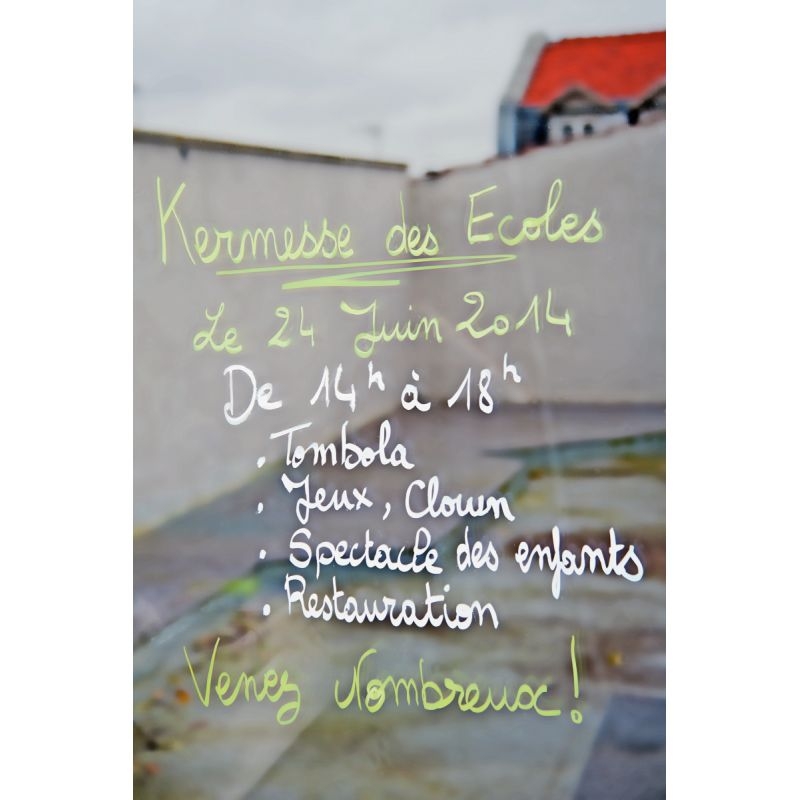 Kermesse des Ecoles
Le 24 Juin 2014
De 14h à 18h
. Tombola
. Jeux, Clown
. Spectacle des enfants
. Restauration
Venez Nombreux !